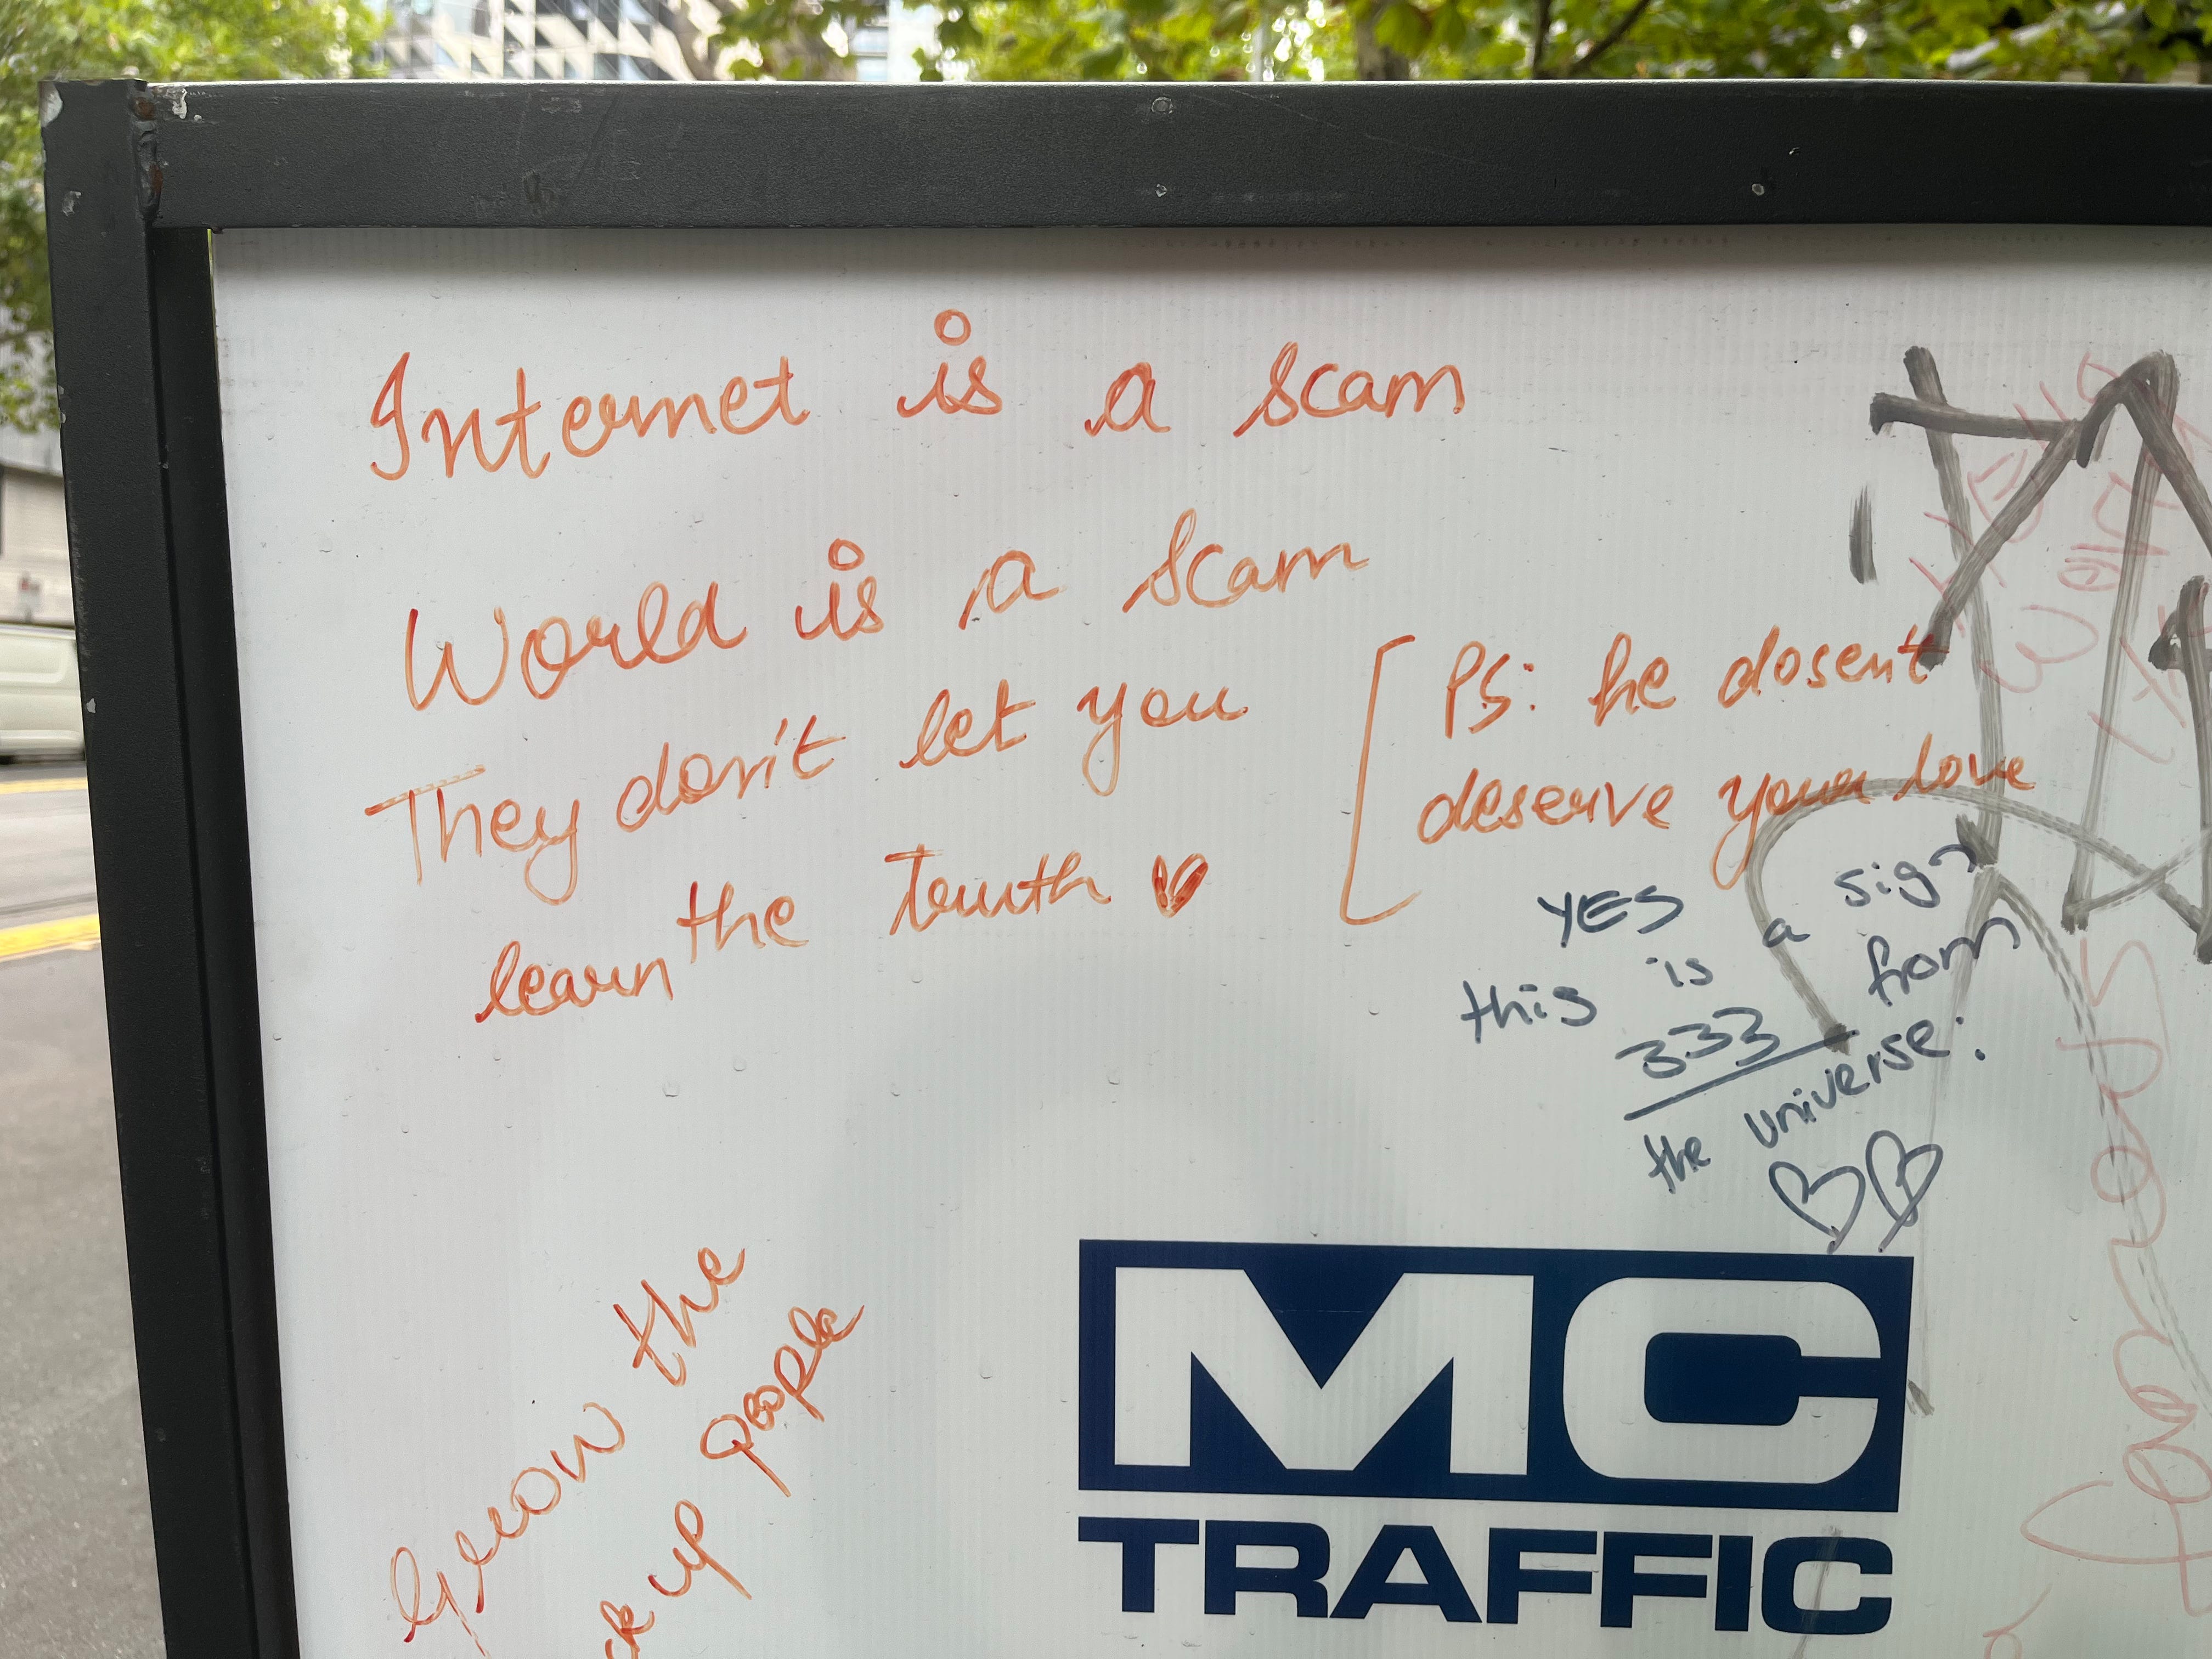 Internet is a scam
World is a scam
They don't let you
learn the truth
PS: he dosent
deserve your love
YES
this is a sign
333 from
the universe:
Grow the
up people
MC
TRAFFIC